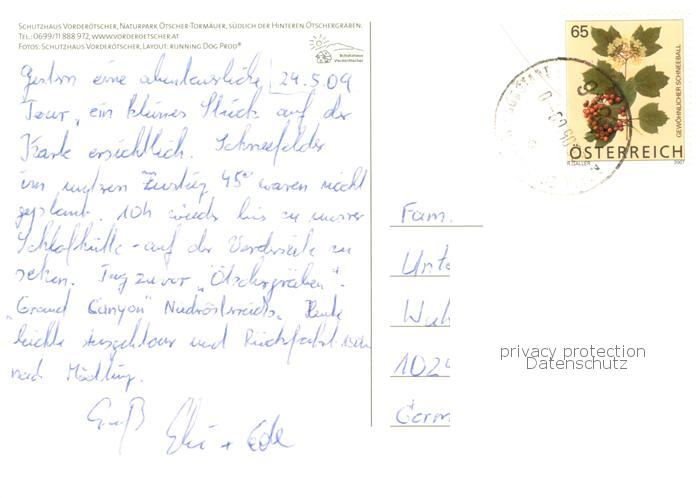 SCHUTZHAUS VORDERÖTSCHER, NATURPARK ÖTSCHER-TORMÄUER, SÜDLICH DER HINTEREN ÖTSCHERGRÄBEN.
TEL.: 0699/11 888 972, WWW.VORDEROETSCHER.AT
FOTOS: SCHUTZHAUS VORDERÖTSCHER, LAYOUT: RUNNING DOG PROD®
Schutzhaus
Vorderötscher
Gestern eine abenteuerliche 24.5.09
Tour, ein kleines Stück auf der
Karte ersichtlich. Schneefelder
im unteren 45° waren nicht
geplant. 10h wieder bis zu unserer
Schlafhütte - auf der Vorderseite zu
sehen. Tag zuvor "Ötschergräben".
"Grand Canyon" Niederösterreichs. Heute
leichte und Rückfahrt
nach Mödling.
Gruß
65
GEWÖHNLICHER SCHNEEBALL
ÖSTERREICH
2007
Fam.
Unte
1024
Germ
privacy protection
Datenschutz